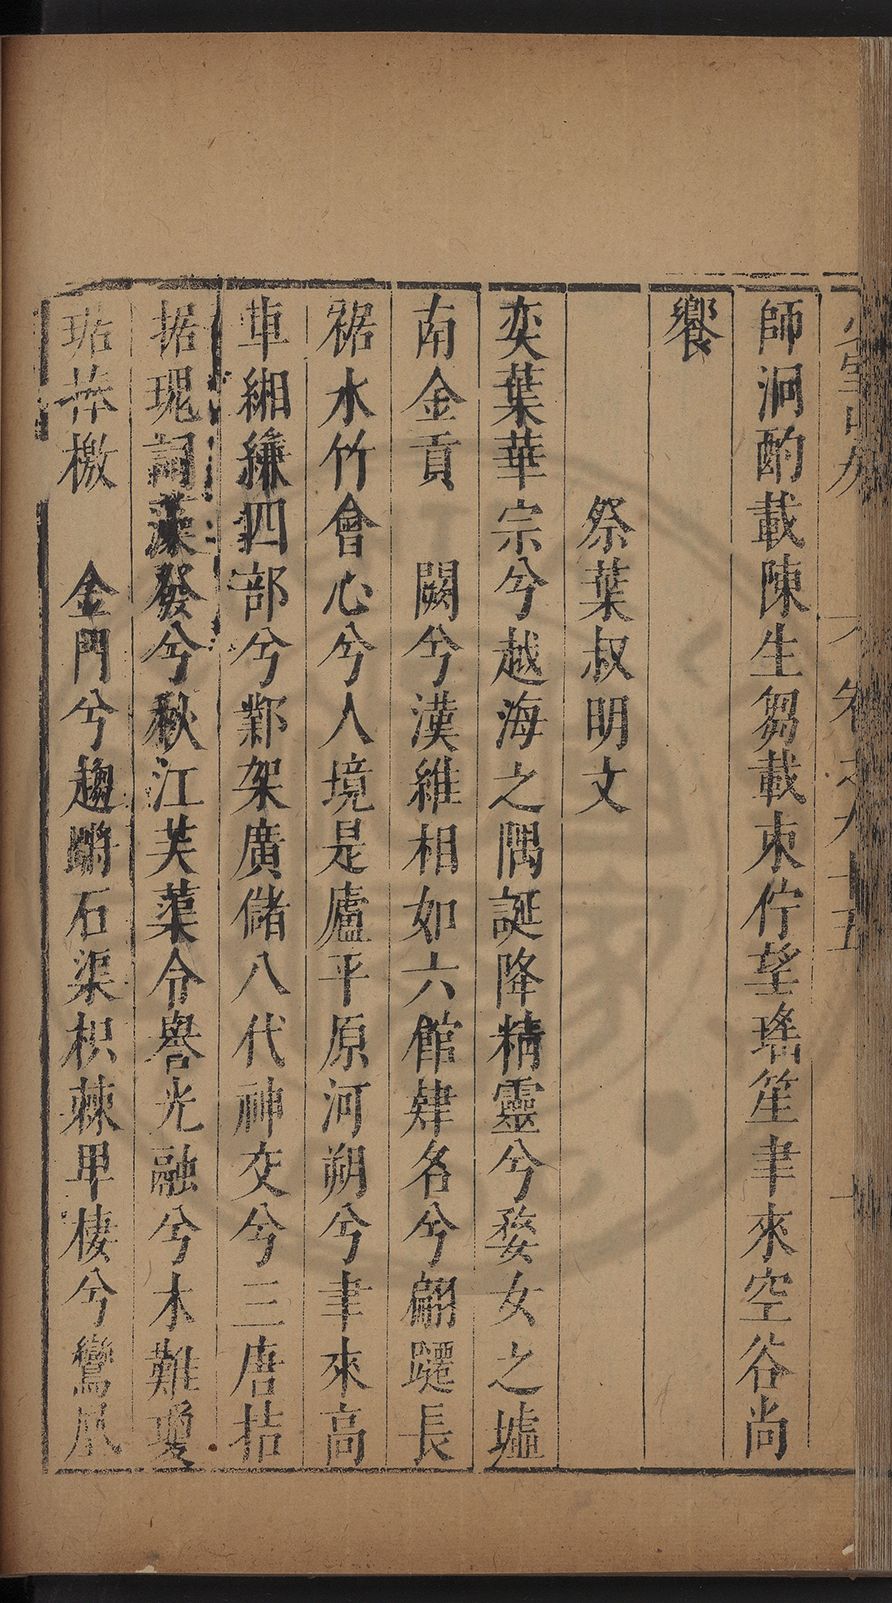 師泂酌載陳生芻載束佇望瑤笙聿來空谷尚
饗
祭葉叔明文
奕葉華宗兮越海之隅誕降精靈兮婺女之墟
南金貢　闕兮漢雉相如六館肄名兮翩躚長
裾水竹會心兮人境是廬平原河朔兮聿來高
車緗縑四部兮鄴架廣儲八代神交兮三唐拮
据瑰詞藻發兮秋江芙蕖令譽光融兮木難瓊
琚捧檄　金門兮趨蹌石渠枳棘卑棲兮鸞鳳
卷之九十五